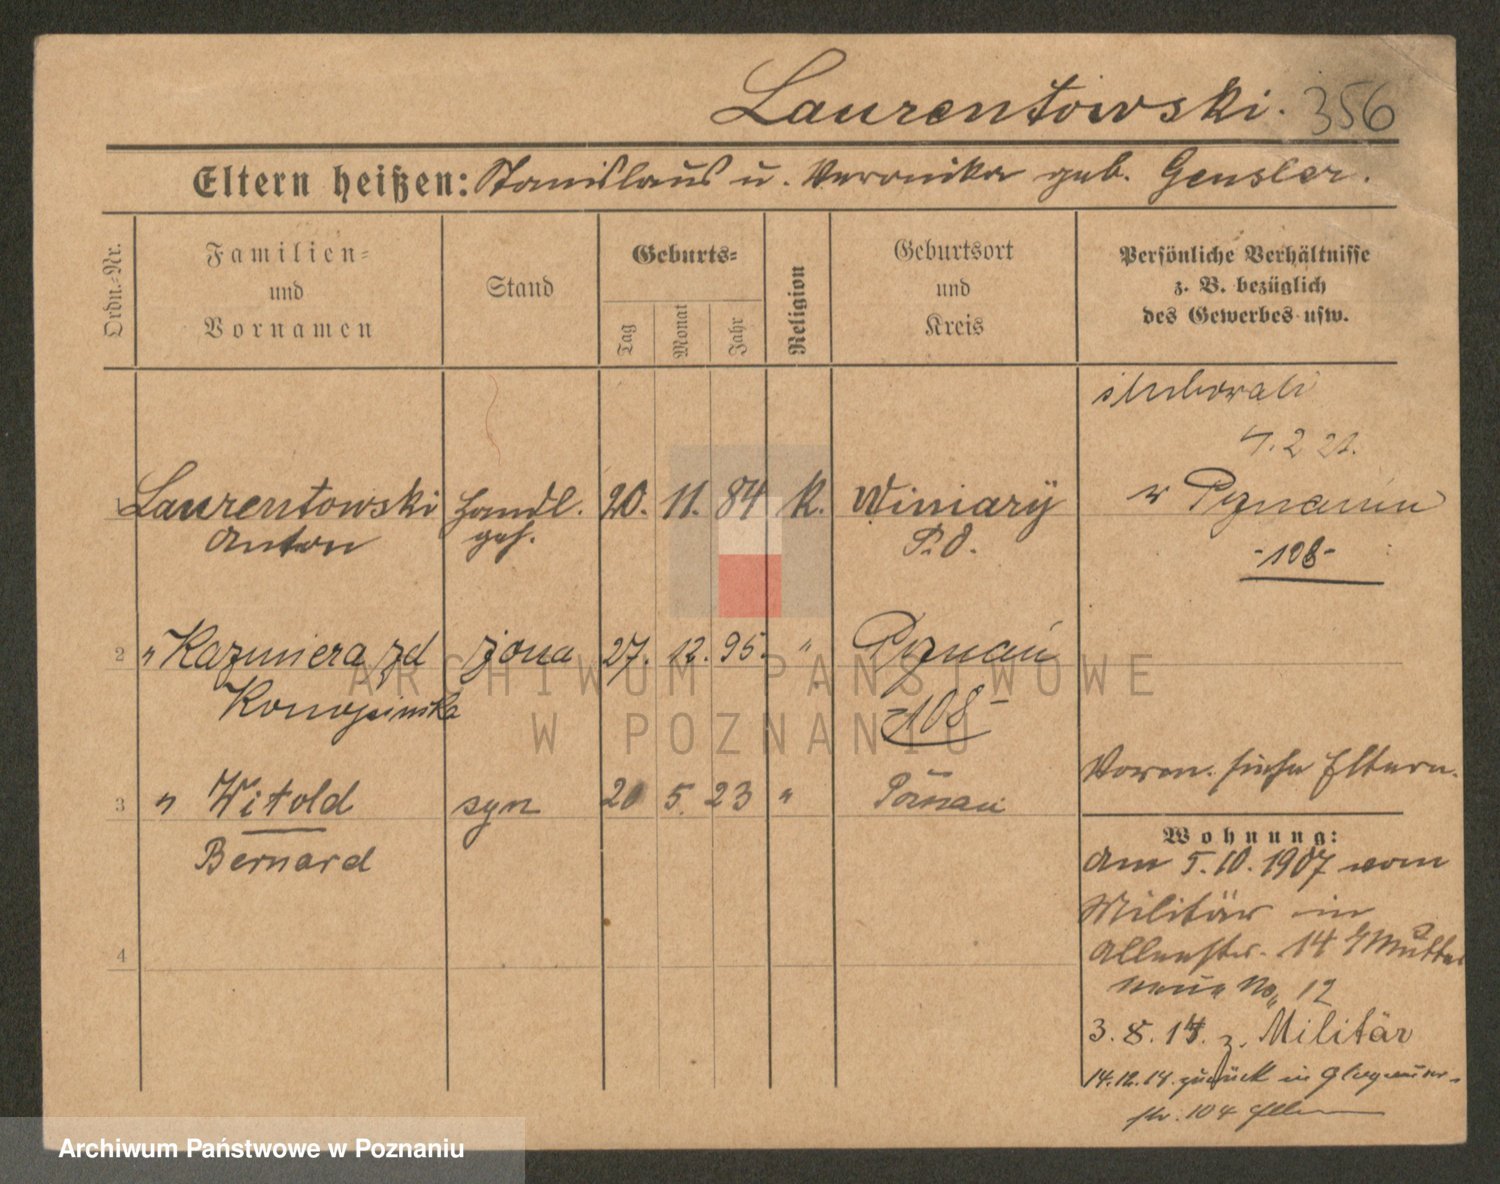 Laurentowski. 356
Eltern heißen: Stanislaus u. Veronika geb. Gensler.
Ordn.-Nr.
Familien-
und
Vornamen
Stand
Geburts-
Tag
Monat
Jahr
Religion
Geburtsort
und
Kreis
Persönliche Verhältnisse
z. B. bezüglich
des Gewerbes usw.
ślubowali
4. 2 22.
w Poznaniu
-108-
1 Laurentowski Handl. 20. 11. 84 K. Winiary
Anton geh. P. O.
2 " Kazimiera zd żona 27. 12. 95. " Poznań
-108-
3 " Witold syn 20 5. 23 " Poznań
Bernard
4
Vorm. siehe Eltern.
Wohnung:
Am 5. 10. 1907 vom
Militär in
Allenstr. 14 Mutter
neue No. 12
3. 8. 14. z. Militär
14. 12. 14. zurück in Glogauer-
str. 104
ARCHIWUM PAŃSTWOWE
W POZNANIU
Archiwum Państwowe w Poznaniu